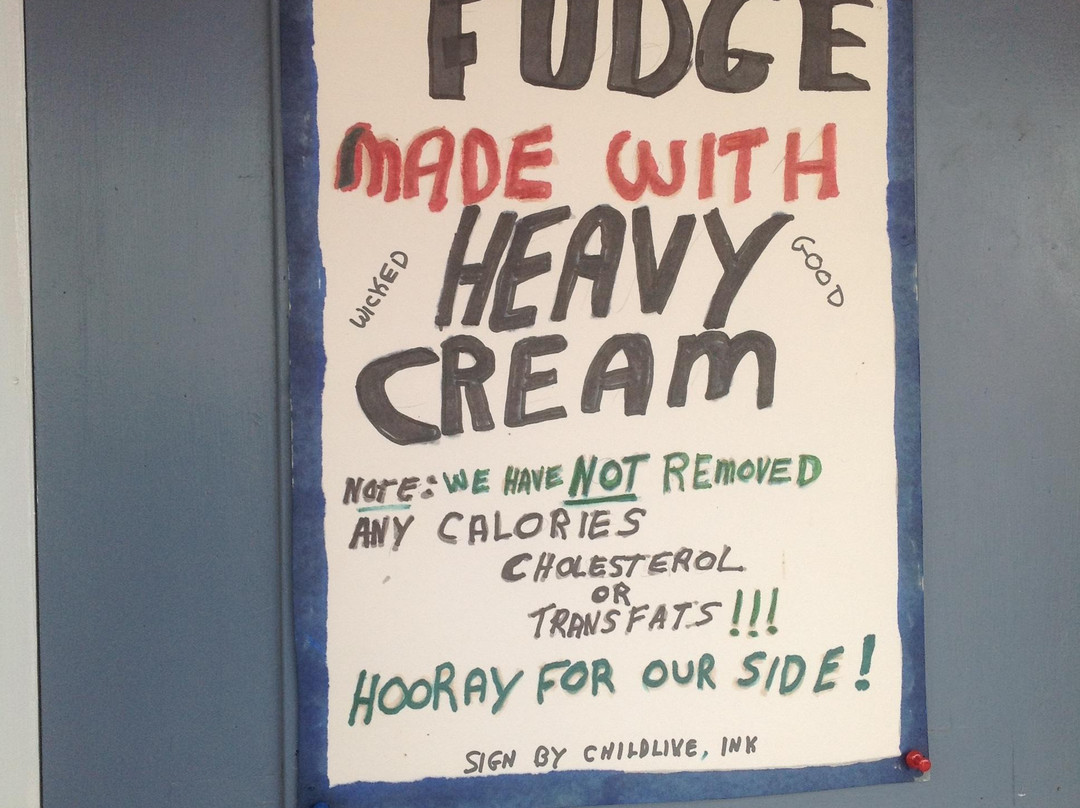 FUDGE
MADE WITH
HEAVY
WICKED
GOOD
CREAM
NOTE: WE HAVE NOT REMOVED
ANY CALORIES
CHOLESTEROL
OR
TRANS FATS!!!
HOORAY FOR OUR SIDE!
SIGN BY CHILDLIKE, INK